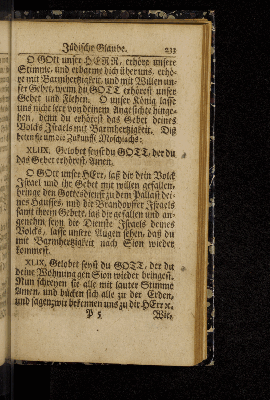 Jüdischer Glaube. 233
O GOtt unser HERR, erhöre unsere
Stimme, und erbarme dich über uns, erhö-
re mit Barmhertzigkeit, und mit Willen un-
ser Gebet, wenn du GOTT erhörest unser
Gebet und Flehen. O unser König lasse
uns nicht leer von deinem Angesichte hinge-
hen, denn du erhörest das Gebet deines
Volcks Israels mit Barmhertzigkeit. Diß
beten sie um die Zukunfft Moschiachs:
XLIIX. Gelobet seyst du GOTT, der du
das Gebet erhörest, Amen.
O GOtt unser HErr, laß dir dein Volck
Israel und ihr Gebet mit willen gefallen,
bringe den Gottesdienst zu dem Pallast dei-
nes Hauses, und die Brandopffer Israels
samt ihrem Gebete, laß dir gefallen und an-
genehm seyn die Dienste Israels deines
Volcks, lasse unsere Augen sehen, daß du
mit Barmhertzigkeit nach Sion wieder
kommest.
XLIX. Gelobet seyst du GOTT, der du
deine Wohnung gen Sion wieder bringest.
Nun schreyen sie alle mit lauter Stimme
Amen, und bücken sich alle zu der Erden,
und sagen, wir bekennen uns zu dir HErr ꝛc.
P 5 Wir,